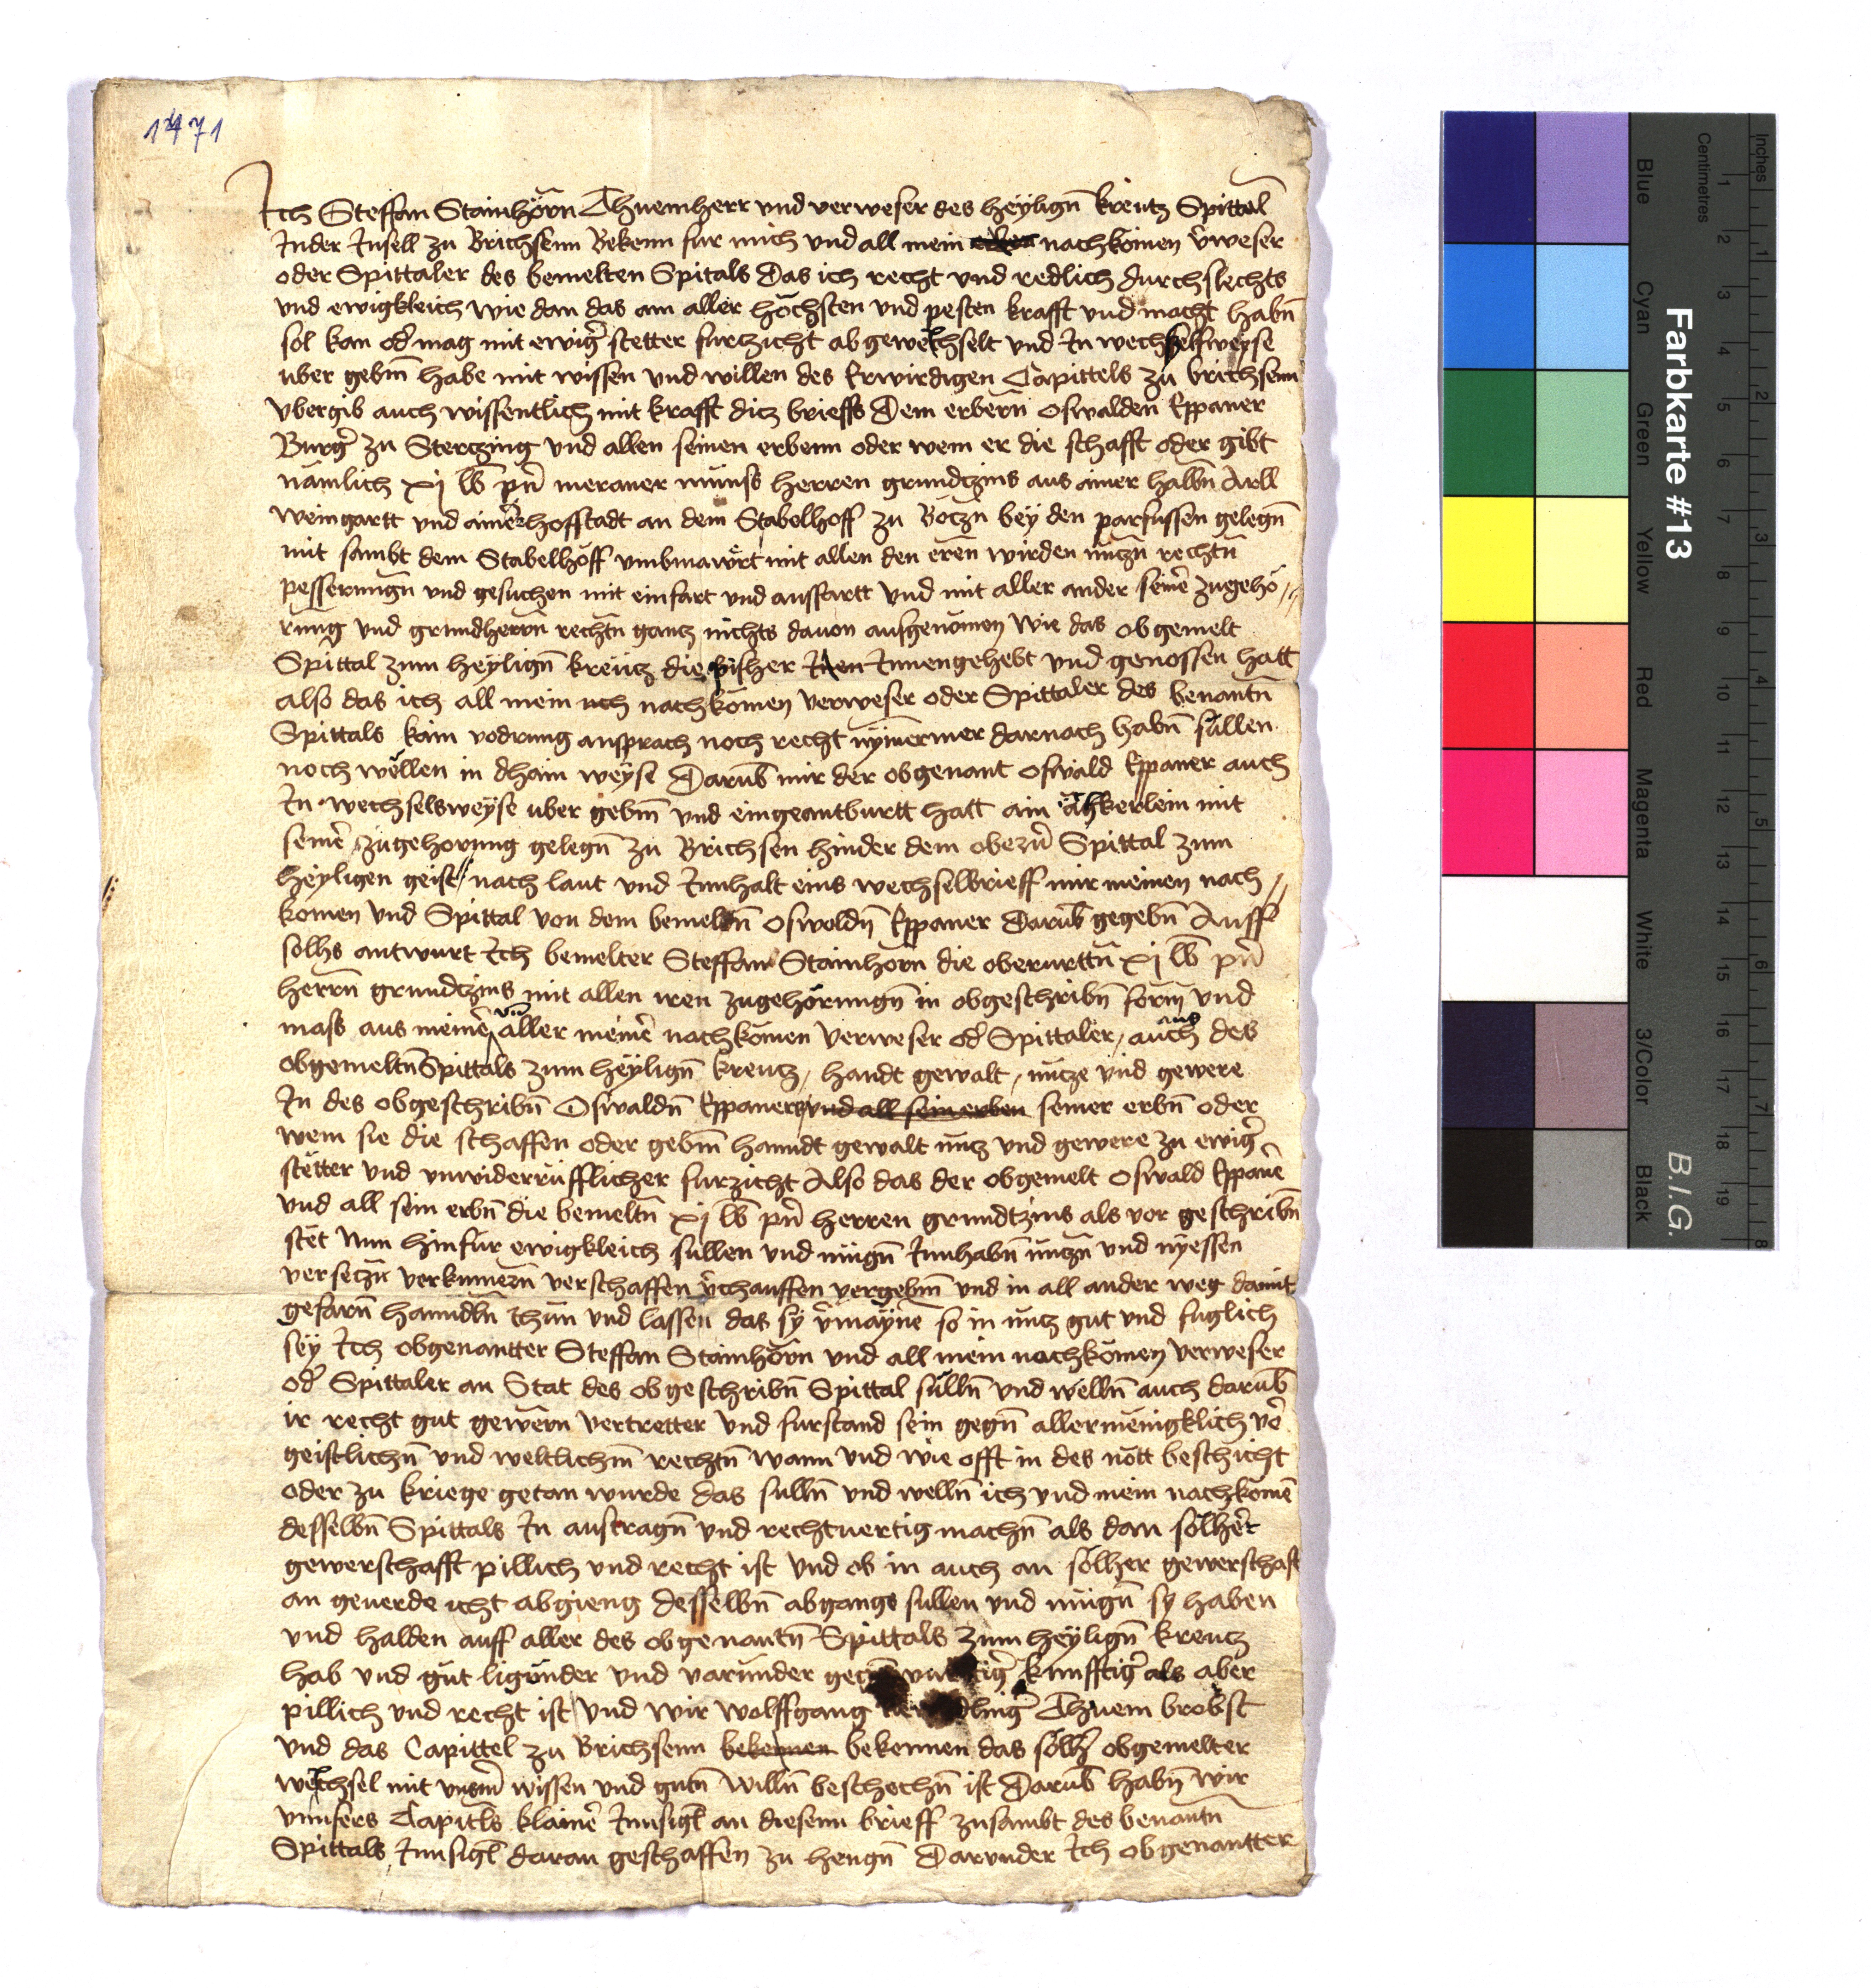 1471
Ich Steffan Stainhörn Thuemherr vnd verweser des heyligñ kreutz Spittal
Inder Insell zu Brichsenn Bekenn fur mich vnd all mein erben nachkömen v̂weser
oder Spittaler des bemelten Spitals Das ich recht vnd redlich durchslechts
vnd ewigkleich wie dan das am aller höchsten vnd pesten krafft vnd macht habñ
sol kan od̂ mag mit ewiĝ stetter furczicht abgewechselt vnd In wechselsweyse
uber gebm̄ habe mit wissen vnd willen des Erwirdigen Capittels zu brichsenn
Vbergib auch wissentlich mit krafft dicz brieffs Dem erbern̄ Oswalden Eppaner
Burĝ zu Sterczing vnd allen seinen erbenn oder wem er die schafft oder gibt
nämlich xj lb pn̂ meraner münss herren grundtzins aus ainer halbñ Arll
Weingartt vnd ainer hoffstadt an dem Stabelhoff zu Boczñ bey den parfussen gelegñ
mit sambt dem Stabelhoff vmbmawrt mit allen den eren wirden nuczñ rechtñ
pesserungñ vnd gesuchen mit einfart vnd aussfartt vnd mit aller ander seinê zugehö//
rung vnd grundherrn̄ rechtñ gantz nichts dauon ausgenomen Wie das obgemelt
Spittal zum heyligñ kreutz die pisher Inen Innengehebt vnd genossen hatt
also das ich all mein nch nachkömen verweser oder Spittaler des benantñ
Spittals kain vodrung ansprach noch recht nymermer darnach habñ süllen
noch wellen in dhain weyse Darub̄ mir der obgenant Oswald Eppaner auch
In wechselsweyse uber gebm̄ vnd eingeantburtt hatt ain ackerlein mit
seinê zugehorung gelegñ zu Brichsen hinder dem obezn̂ Spittal zum
heyligen geist// nach laut vnd Innhalt eins wechselbrieff mir meinen nach//
komen vnd Spittal von dem bemeltñ Oswoldñ Eppaner Darub̄ gegebñ Auff
solhs antwurt Ich bemelter Steffan Stainhorn die oberurttñ xj lb pn̂
herrn̄ grundtzins mit allen iren zugehörungñ in obgeschribñ form̄ vnd
mass aus meinê vnd aller meinê nachkömen verweser od̂ Spittaler, auch aus des
obgemeltñ Spittals zum heyligñ kreutz, handt gewalt, nutze vnd gewere
In des obgeschribñ Oswaldñ Eppaners vnd all sein erben seiner erbñ oder
wem sie die schaffen oder gebm̄ hanndt gewalt nutz vnd gewere zu ewiĝ
stëtter vnd vnwiderrüfflicher furzicht Also das der obgemelt Oswald Eppanê
vnd all sein erbñ die bemeltñ xj lb pn̂ herren grundtzins als vor geschribñ
stet Nun hinfur ewigkleich süllen vnd mügñ Innhabñ nutzñ vnd nyessen
verseczñ verkumerñ verschaffen v̂chauffen vergebm̄ vnd in all ander weg damit
gefarñ hanndlñ thün vnd lassen das sy v̂maynê so in nutz gut vnd fuglich
sey Ich obgenantter Steffan Stainhörn vnd all mein nachkömen verweser
od̂ Spittaler an Stat des obgeschribñ Spittal süllñ vnd wellñ auch darub̄
ir recht gut gewern vertretter vnd furstand sein gegñ allermenigklich vô
geistlichñ vnd weltlichm̄ rechtñ wann vnd wie offt in des nott beschicht
oder zu kriege getan wurde das sullñ vnd wellñ ich vnd mein nachkömê
desselbñ Spittals In austragñ vnd rechtuertig machñ als dan solher
gewerschafft pillich vnd recht ist vnd ob in auch an solher gewerschaft
an geuerde icht abgieng desselbñ abgangs sullen vnd mügñ sy haben
vnd halden auff aller des obgenantñ Spittals zum heyligñ kreutz
hab vnd gut ligünder vnd varünder kunfftiĝ als aber
pillich vnd recht ist vnd wir Wolffgang Thuem brobst
vnd das Capittel zu Brichsenn bekennen bekennen das sölĥ obgemelter
wechsel mit vnsm̄ wissen vnd gutñ willñ beschechñ ist Darub̄ habñ wir
vnnsers Capitls klainê Innsigl an diesenn brieff zusambt des benantñ
Spittals Innsigl daran geschaffen zu hengñ Darunder Ich obgenantter
Farbkarte #13
B.I.G.
Centimetres
Inches
Blue
Cyan
Green
Yellow
Red
Magenta
White
3/Color
Black
1 2 3 4 5 6 7 8 9 10 11 12 13 14 15 16 17 18 19
1 2 3 4 5 6 7 8